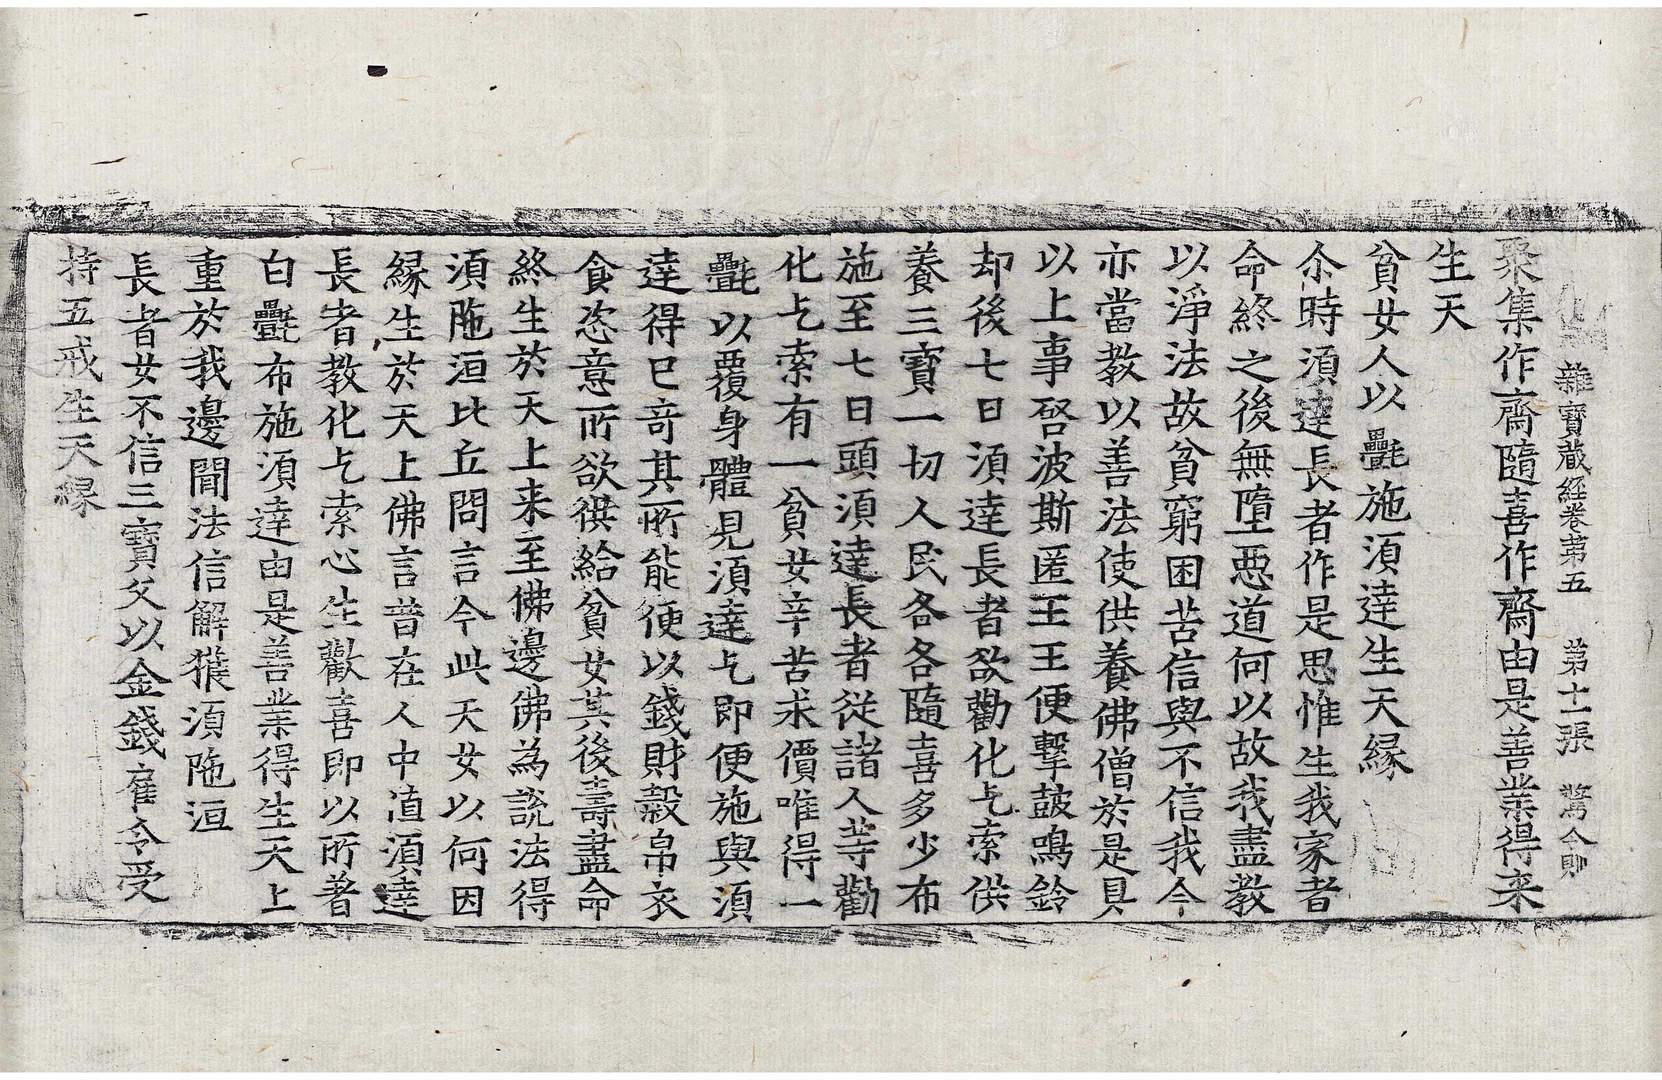 雜寶藏經卷苐五　第十一張　驚
聚集作齋隨喜作齋由是善業得来
生天
貧女人以㲲施湏達生天縁
尒時湏達長者作是思惟生我家者
命終之後無墮惡道何以故我盡教
以淨法故貧窮困苦信與不信我今
亦當教以善法使供養佛僧於是具
以上事啓波斯匿王王便擊鼓鳴鈴
却後七日湏達長者欲勸化乞索供
養三寶一切人民各各隨喜多少布
施至七日頭湏達長者從諸人等勸
化乞索有一貧女辛苦求價唯得一
㲲以覆身體見湏達乞即便施與湏
達得已竒其所能便以錢財穀帛衣
食恣意所欲供給貧女其後壽盡命
終生於天上来至佛邊佛為説法得
湏陁洹比丘問言今此天女以何因
縁生於天上佛言昔在人中值湏達
長者教化乞索心生歡喜即以所著
白㲲布施湏達由是善業得生天上
重於我邊聞法信解獲湏陁洹
長者女不信三寶父以金錢雇令受
持五戒生天縁